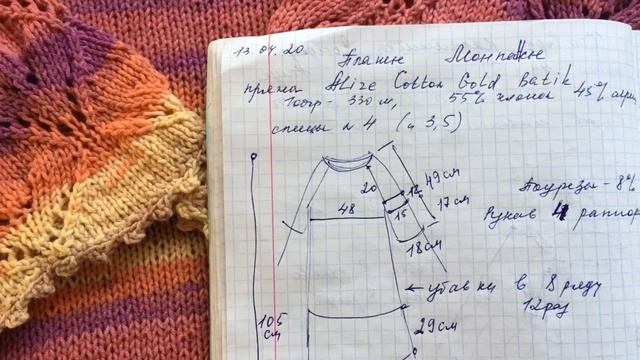 13.04.20.
Платье Монпасье
пряжа Alize Cotton Gold Batik
100гр - 330 м, 55% хлопок 45% акри
спицы № 4 (и 3,5)
49 см
20
17 см
48
15
18 см
Рукав 4 раппор
убавки в 8 ряду
12 раз
105
см
29 см